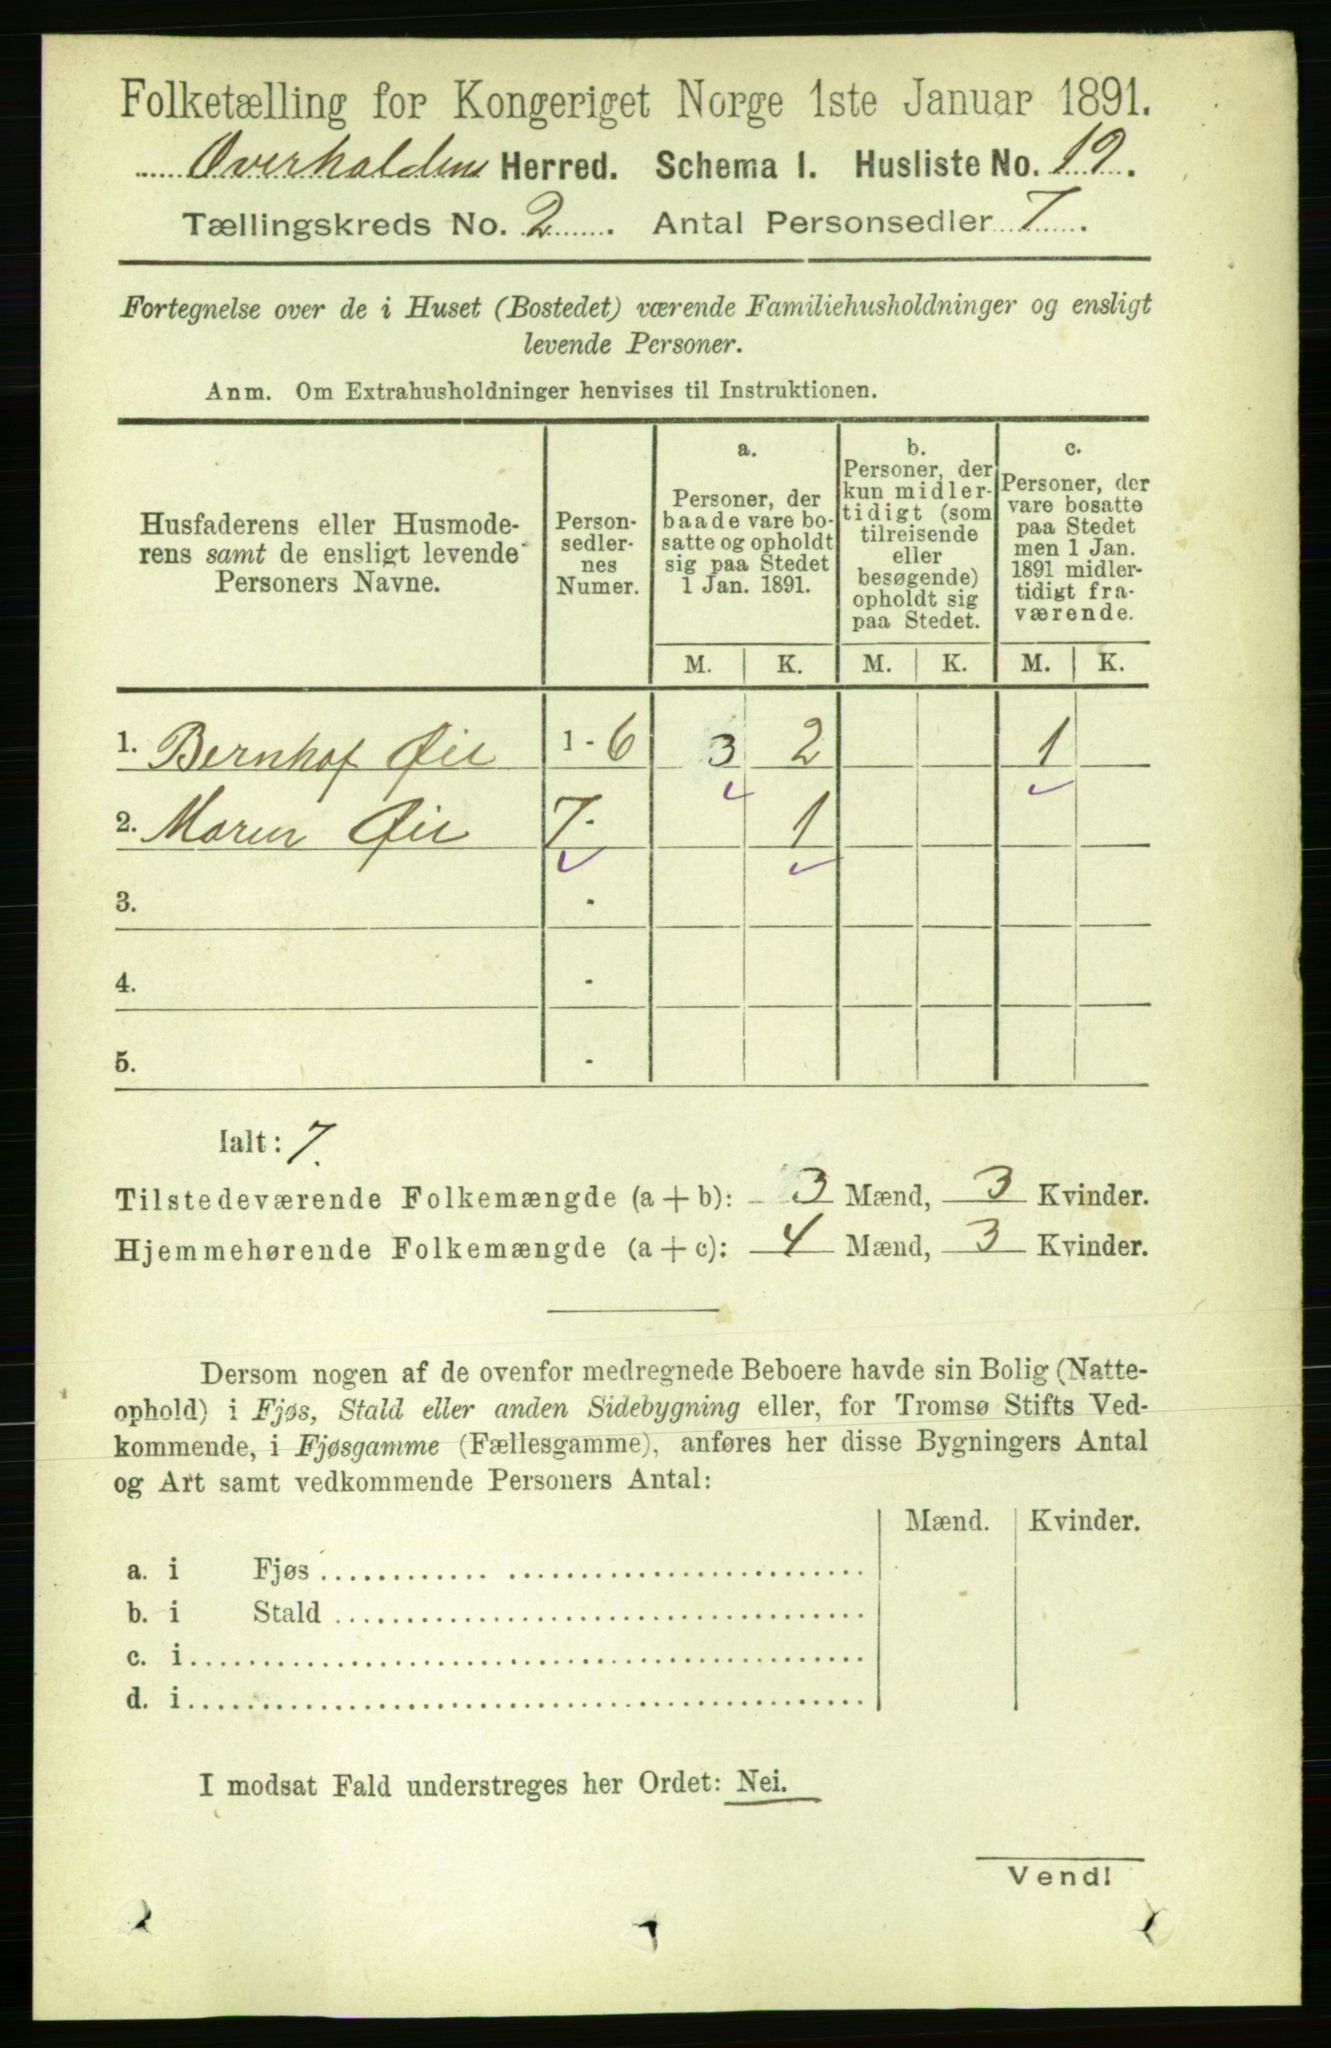 Folketælling for Kongeriget Norge 1ste Januar 1891.
Overhaldens Herred. Schema I. Husliste No. 19.
Tællingskreds No. 2. Antal Personsedler 7.
Fortegnelse over de i Huset (Bostedet) værende Familiehusholdninger og ensligt
levende Personer.
Anm. Om Extrahusholdninger henvises til Instruktionen.
Husfaderens eller Husmode-
rens samt de ensligt levende
Personers Navne.
Person-
sedler-
nes
Numer.
a.
Personer, der
baade vare bo-
satte og opholdt
sig paa Stedet
1 Jan. 1891.
b.
Personer, der
kun midler-
tidigt (som
tilreisende
eller
besøgende)
opholdt sig
paa Stedet.
c.
Personer, der
vare bosatte
paa Stedet
men 1 Jan.
1891 midler-
tidigt fra-
værende.
M. K. M. K. M. K.
1. Bernhof Øie 1-6 3 2 1
2. Maren Øie 7- 1
3. -
4. -
5. -
Ialt: 7.
Tilstedeværende Folkemængde (a + b): 3 Mænd, 3 Kvinder.
Hjemmehørende Folkemængde (a + c): 4 Mænd, 3 Kvinder.
Dersom nogen af de ovenfor medregnede Beboere havde sin Bolig (Natte-
ophold) i Fjøs, Stald eller anden Sidebygning eller, for Tromsø Stifts Ved-
kommende, i Fjøsgamme (Fællesgamme), anføres her disse Bygningers Antal
og Art samt vedkommende Personers Antal:
Mænd. Kvinder.
a. i Fjøs
b. i Stald
c. i
d. i
I modsat Fald understreges her Ordet: Nei.
Vend!